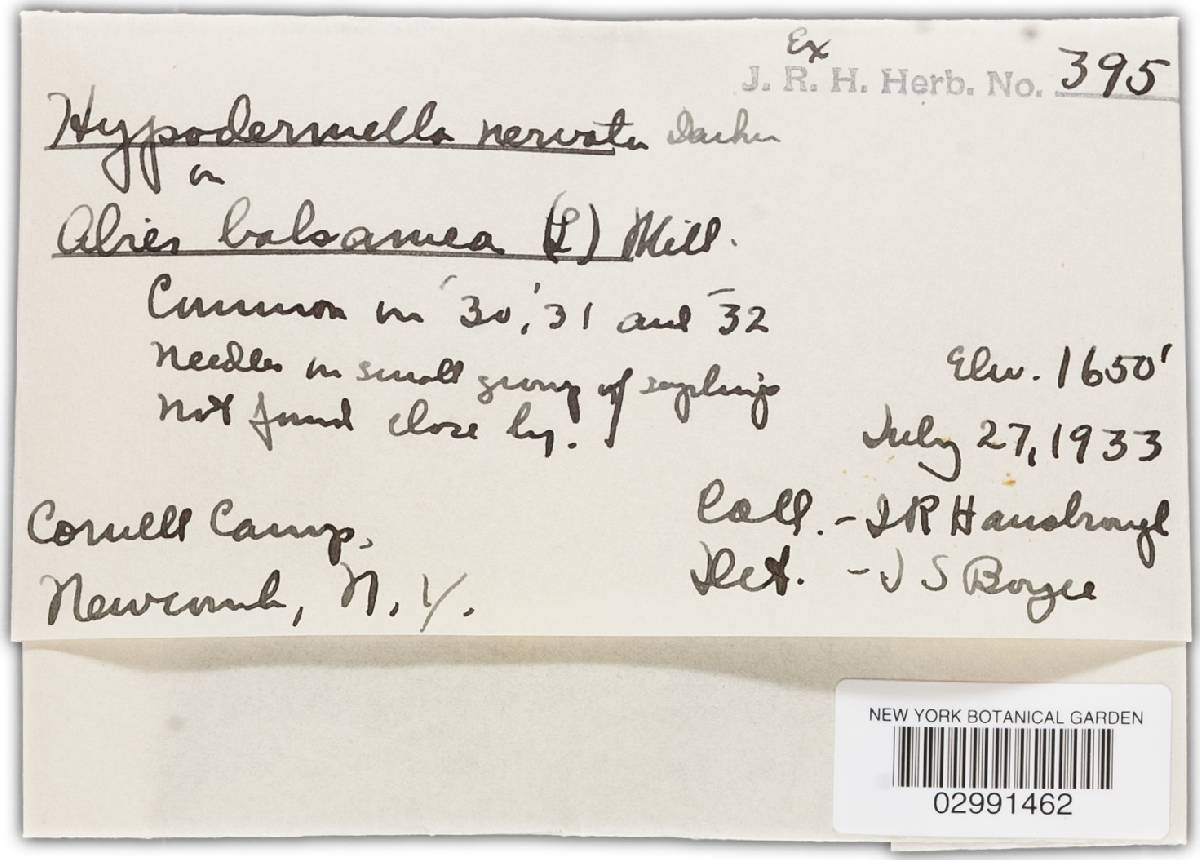 Ex
J. R. H. Herb. No. 395
Hypodermella nervata Darker
on
Abies balsamea (L) Mill.
Common in '30, '31 and '32
Needles on small group of saplings
Not found close by.
Elev. 1650'
July 27, 1933
Cornell Camp,
Newcomb, N. Y.
Coll. - J R Hansbrough
Det. - J S Boyce
NEW YORK BOTANICAL GARDEN
02991462